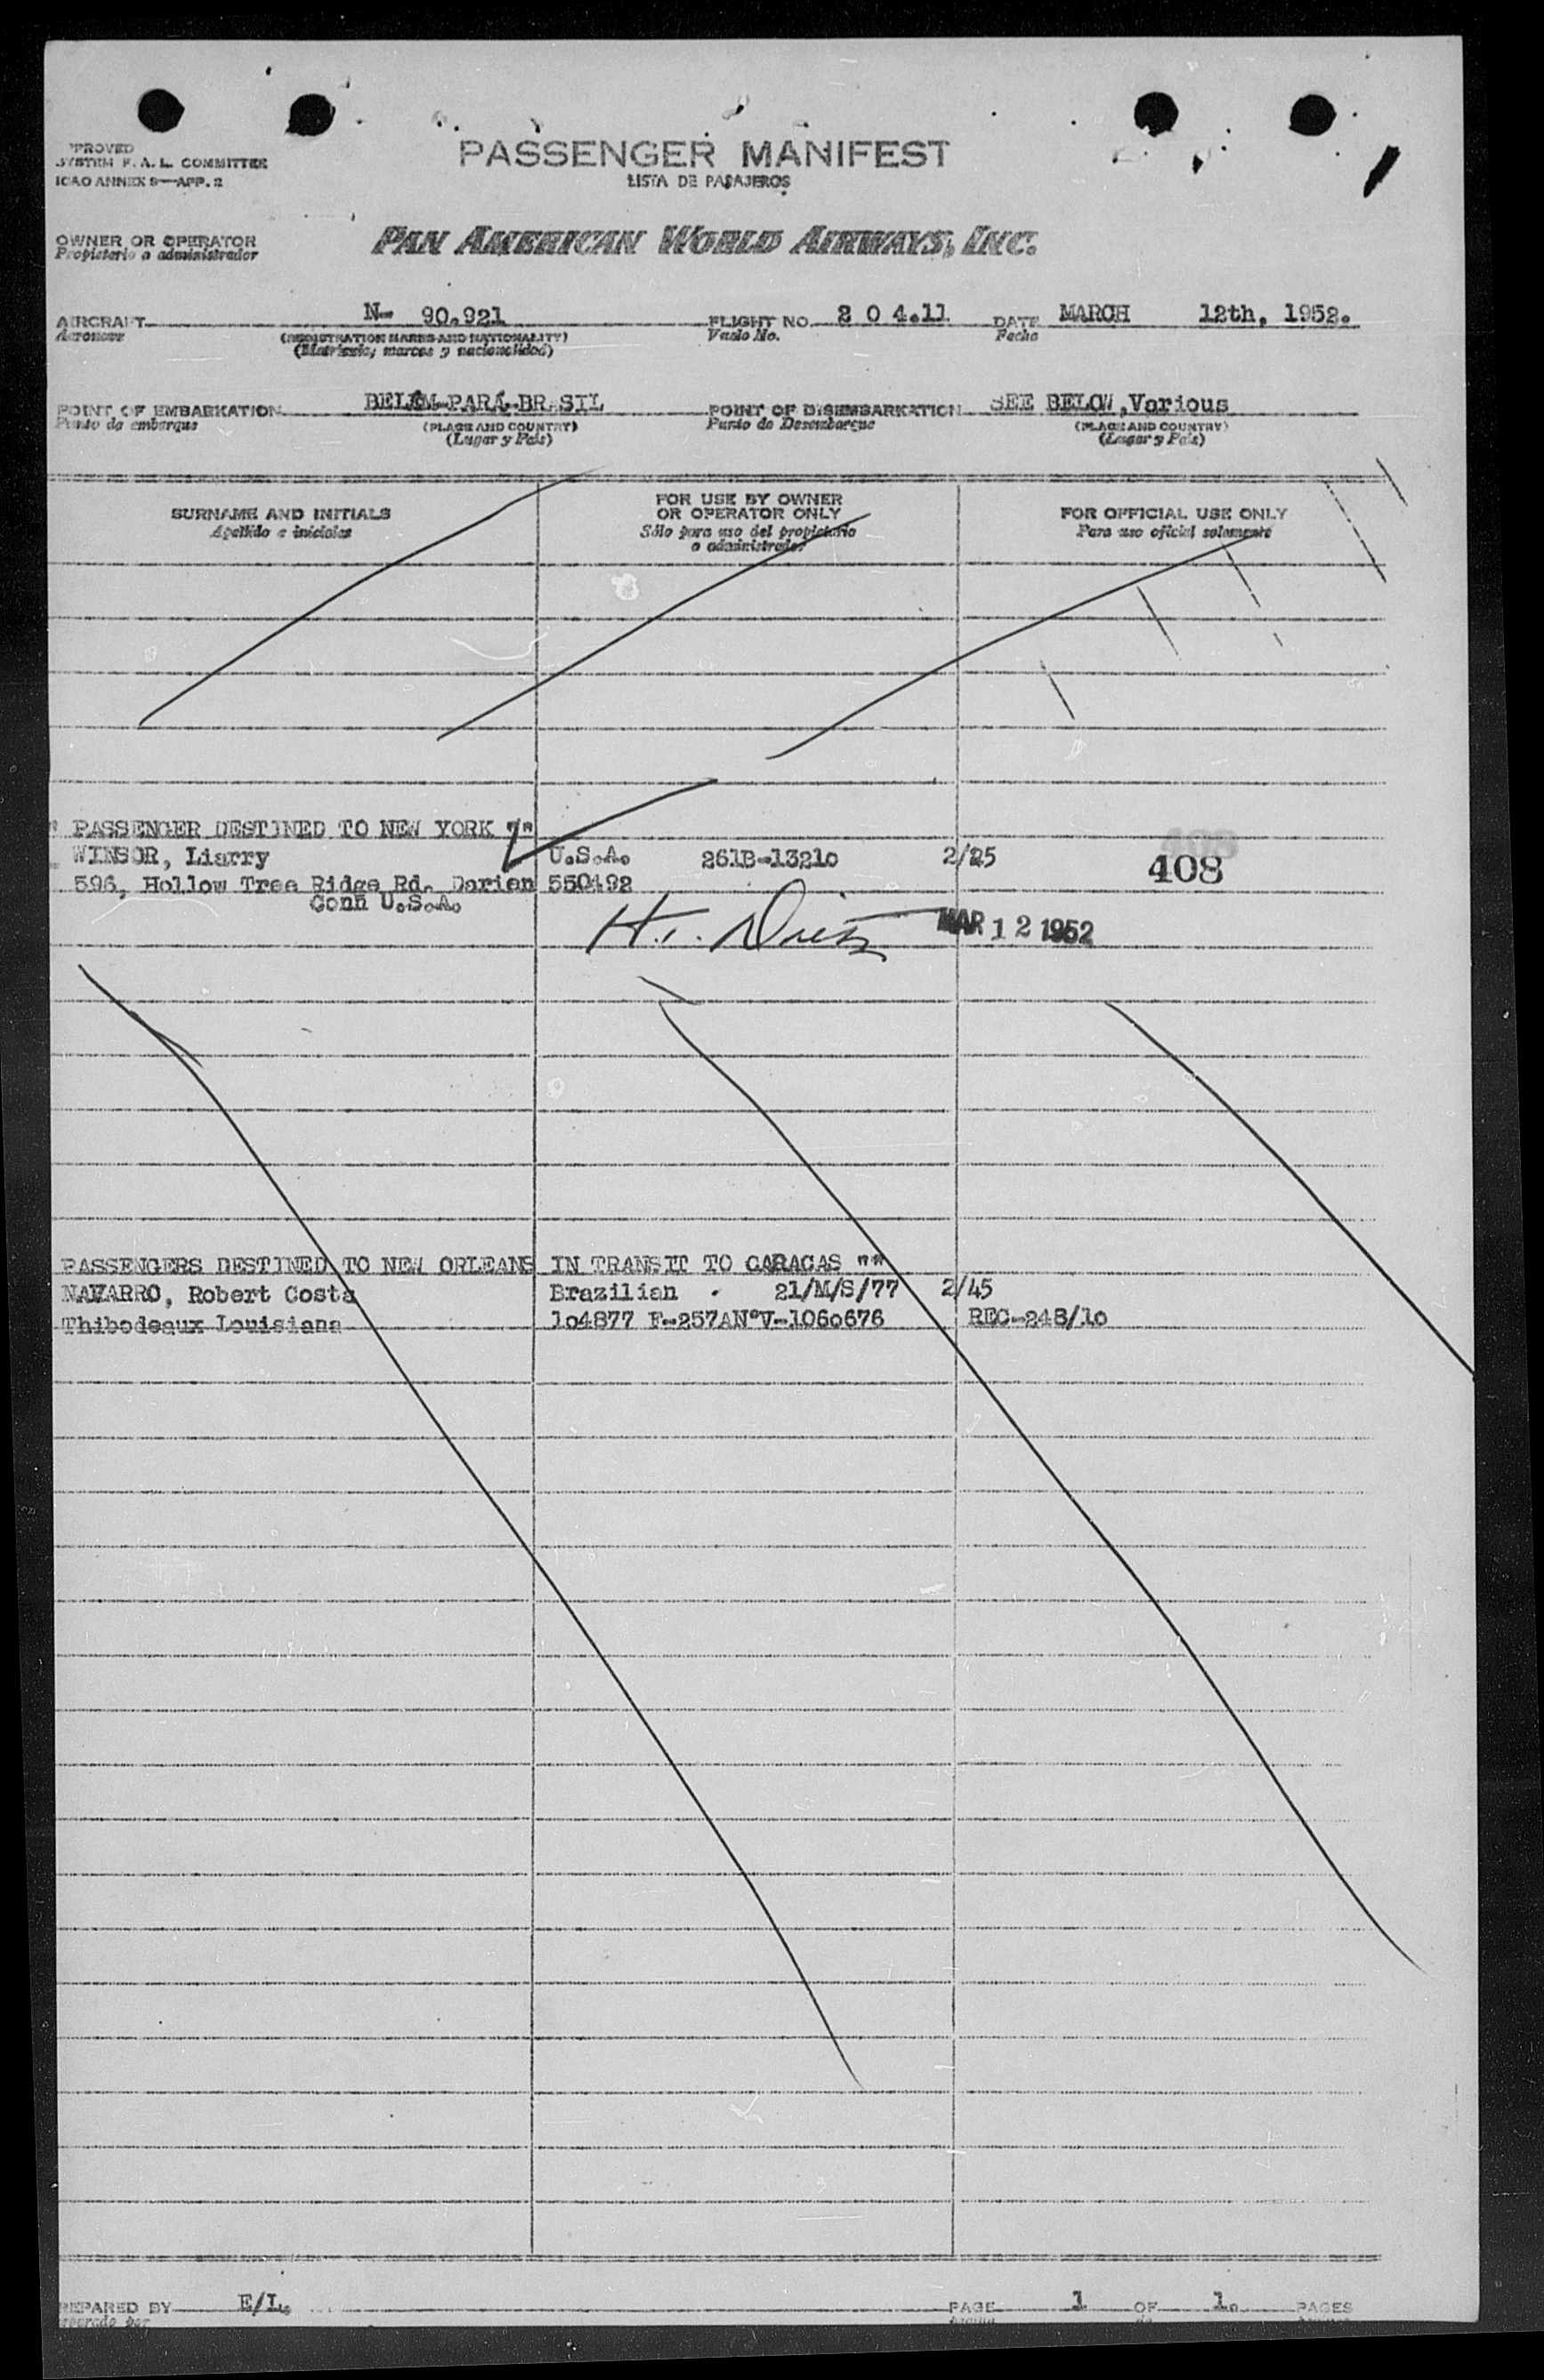 PASSENGER MANIFEST
LISTA DE PASAJEROS
SYSTEM F. A. L. COMMITTEE
ICAO ANNEX 9—APP. 2
OWNER OR OPERATOR PAN AMERICAN WORLD AIRWAYS, INC.
Propietario o administrador
AIRCRAFT N- 90.921 FLIGHT NO. 2 0 4.11 DATE MARCH 12th, 1952.
Aeronave (REGISTRATION MARKS AND NATIONALITY) Vuelo No. Fecha
(Matrícula, marcas y nacionalidad)
POINT OF EMBARKATION BELÉM-PARÁ-BRASIL POINT OF DISEMBARKATION SEE BELOW,Various
Punto de embarque (PLACE AND COUNTRY) Punto de Desembarque (PLACE AND COUNTRY)
(Lugar y País) (Lugar y País)
SURNAME AND INITIALS
Apellido e iniciales
FOR USE BY OWNER
OR OPERATOR ONLY
Sólo para uso del propietario
o administrador
FOR OFFICIAL USE ONLY
Para uso oficial solamente
" PASSENGER DESTINED TO NEW YORK "/"
WINSOR, Liarry U.S.A. 261B-13210 2/25 408
596, Hollow Tree Ridge Rd. Darien 550492
Conn U.S.A.
MAR 12 1952
PASSENGERS DESTINED TO NEW ORLEANS IN TRANSIT TO CARACAS ""
NAVARRO, Robert Costa Brazilian . 21/M/S/77 2/45
Thibodeaux Louisiana 1o4877 F-257AN°V-106o676 REC-248/1o
PREPARED BY E/L. PAGE 1 OF 1. PAGES